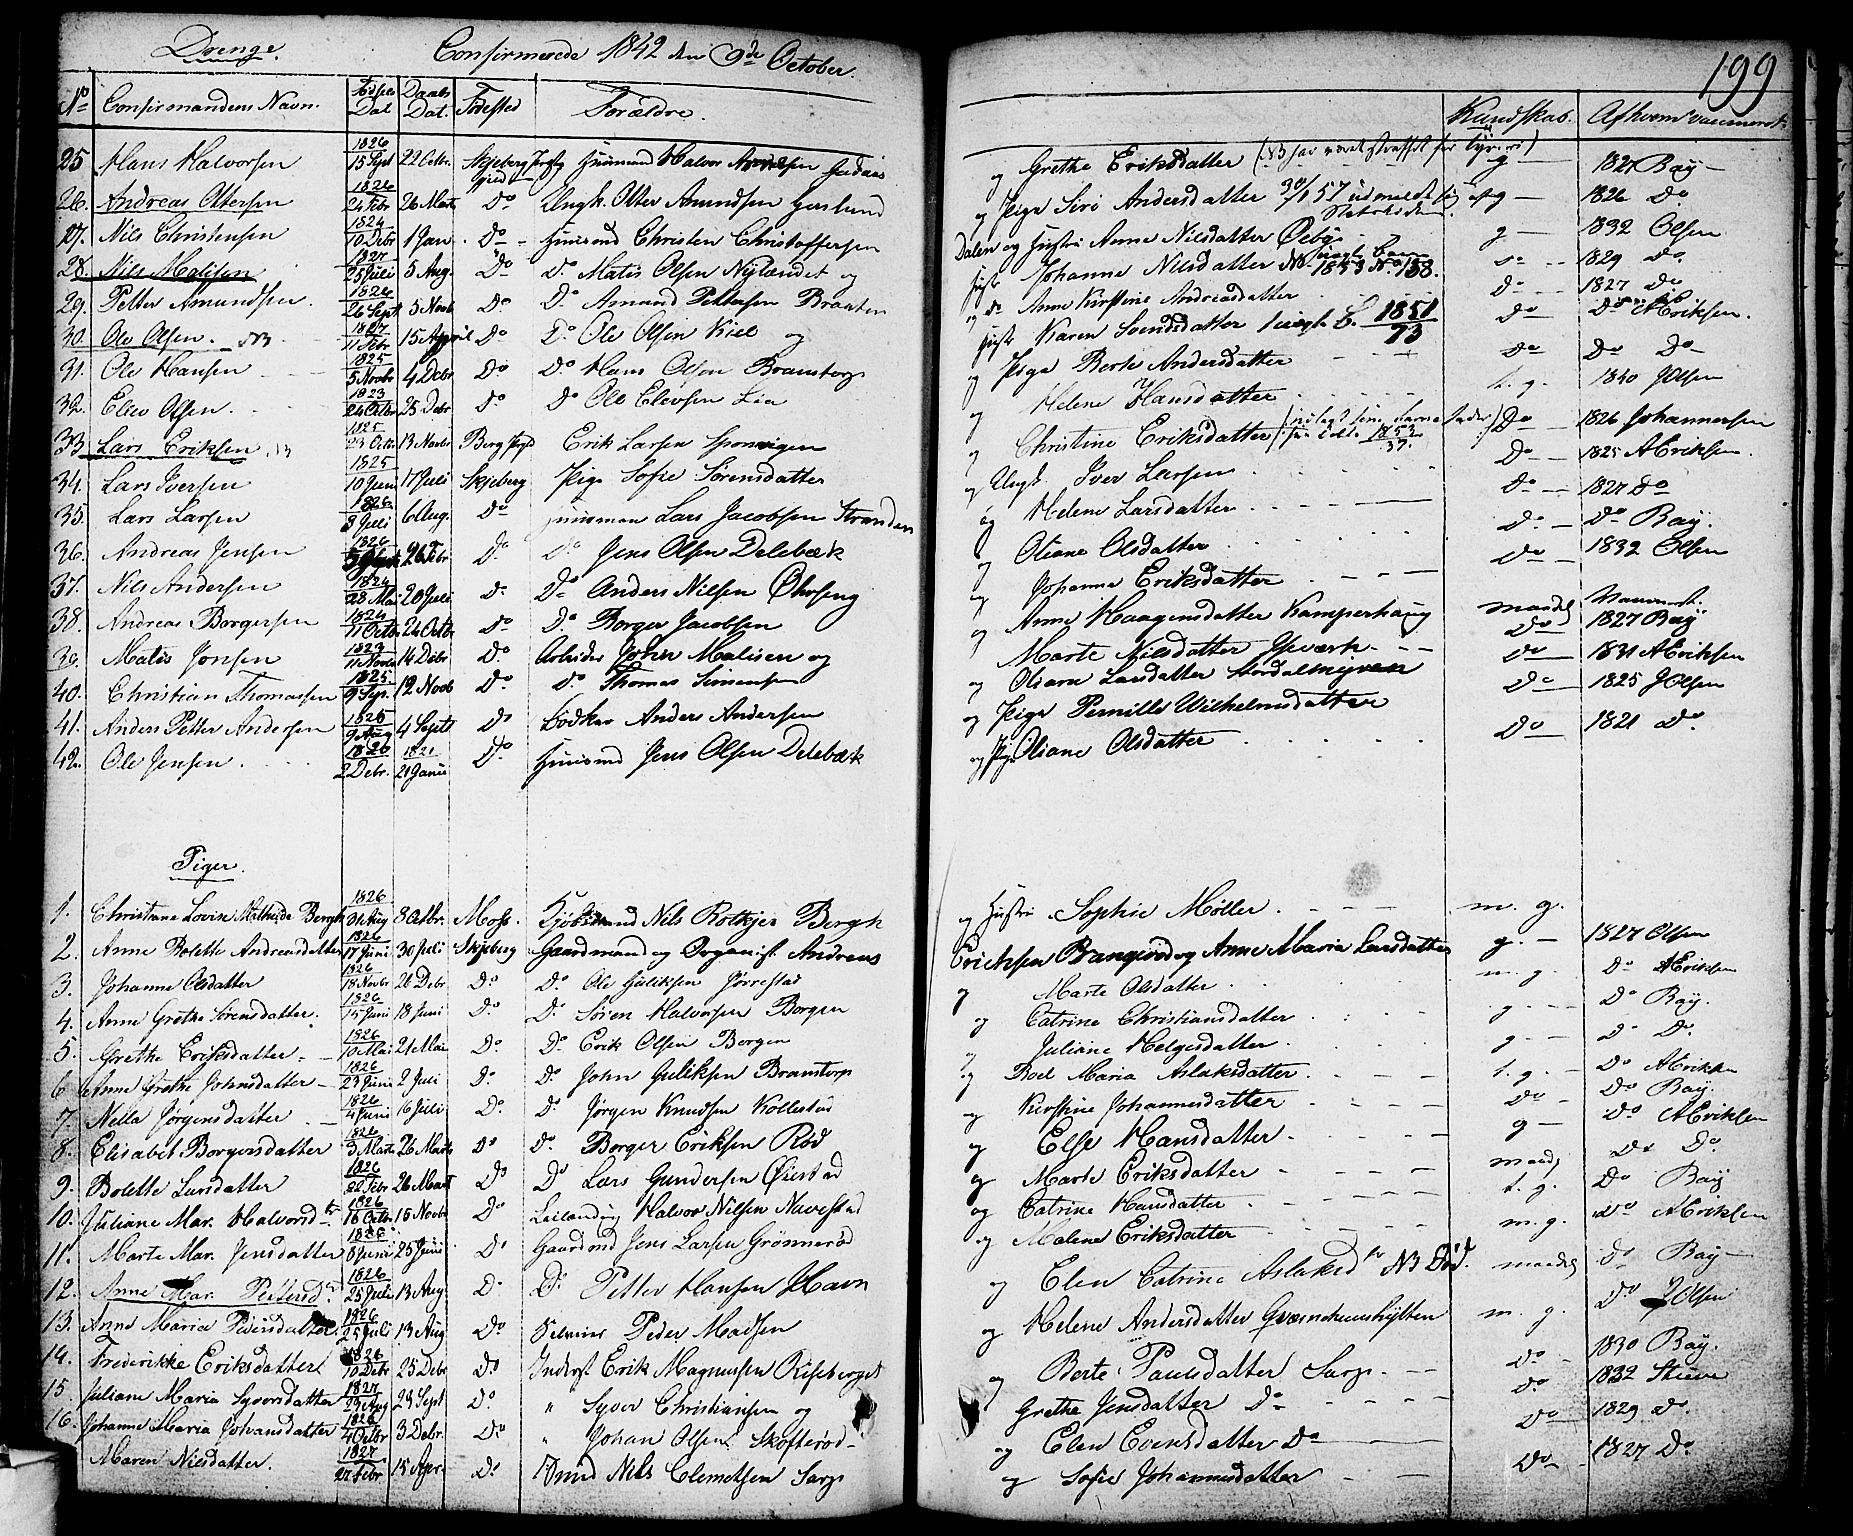 Drenge. Confirmerede 1842 den 9de October. 199
No Confirmandens Navn. Fødsels Dat. Daabs Dat. Fødested Forældre. Kundskab. Af hvem vaccineret
25 Hans Halvorsen 1826 15 Sept 22 Octbr. Skjeberg Huusmand Halvor og Grethe Eriksdatter g 1827 Bay
26. Andreas Ottersen 1826 24 Febr 26 Marts Do Ungk. Otter Amundsen Haslund og Pige Siri Andersdatter 1826 Do
27. Nils Christensen 1824 10 Debr 1 Jan. Do Huusmd Christen Christoffersen Dalen og Hustru Anne Nilsdatter g 1832 Olsen
28. Nils Matisen 1827 25 Juli 5 Aug. Do Do Matis Olsen Nylændet og Hustr Johanne Nilsdatter 1853 No 138. 1829 Do
29. Petter Amundsen. 1826 26 Sept 5 Novb Do Do Amund Pettersen Braaten og Anne Kirstine Andreasdatter Do 1827 Do
30. Ole Olsen. NB 1827 11 Febr 15 Appril Do Do Ole Olsen Kiel og Hustr Karen Svendsdatter 1851 73 Do Do AEriksen.
31. Ole Hansen 1825 5 Novbr 4 Debr Do Do Hans Olsen Bramstorp og Pige Berte Andersdatter Do Do Do
32. Elev Olsen. 1823 24 Octbr 25 Debr Do Do Ole Elevsen Lia og Helene Hansdatter t. g. 1840 JOlsen
33 Lars Eriksen NB 1825 23 Octb 13 Novbr Berg Prgd Erik Larsen Sponvigen og Christine Eriksdatter 1853 37. Do 1826 Johannersen
34. Lars Iversen 1825 10 Juni 17 Juli Skjeberg Pige Sofie Sørensdatter og Ungk Iver Larsen Do 1825 AEriksen.
35. Lars Larsen 1826 8 Juli 6 Aug. Do Huusman Lars Jacobsen Stranden og Helene Larsdatter Do 1827 Do
36. Andreas Jensen 1826 26 Febr Do Do Jens Olsen Delebæk og Oliane Olsdatter Do Do Bay.
37. Nils Andersen 1824 28 Mai 20 Juli Do Do Anders Nilsen og Johanne Eriksdatter Do 1832 Olsen
38. Andreas Borgersen 1824 11 Octb 24 Octbr Do Do Borger Jacobsen og Anne Haagensdatter Kamperhaug maadel 1827 Bay
39. Matis Jonsen 1823 11 Novbr 14 Debr Do Arbeider Joren Matisen og Marte Nilsdatter Do 1831 AEriksen
40. Christian Thomassen 1825 9 Sep. 12 Novb Do Do Thomas Simensen og Oliana Larsdatter Do 1825 JOlsen
41. Anders Petter Andersen 1825 9 Aug 4 Sept Do Bødker Anders Andersen og Pige Pernille Wilhelmsdatter Do 1821 Do
42. Ole Jensen 1820 2 Debr. 1821 21 Janu Do Huusmd Jens Olsen Delebæk og Pige Oliane Olsdatter
Piger.
1. Christiane Lovise Mathilde Bergh 1826 31 Aug 8 Octbr. Moss. Kjøbmand Nils Rotkjer Bergh og Hustru Sophie Møller m. g.
2. Anne Bolette Andreasdatter 1826 17 Juni 30 Juli Skjeberg Gaardmand og Organist Andreas Erichsen Brangerød og Anne Maria Larsdatter g. 1827 Olsen
3. Johanne Olsdatter 1826 18 Novbr 26 Debr Do Do Ole Guliksen Jørrestad og Marte Olsdatter m. g. Do AEriksen
4. Anne Grethe Sørensdatter. 1826 15 Juni 18 Juni Do Do Søren Halvorsen Borgen og Catrine Christiansdatter g. Do Bay.
5. Grethe Eriksdatter 1826 10 Mai 21 Mai Do Do Erik Olsen Borgen og Juliane Helgesdatter g Do Do.
6 Anne Grethe Johnsdatter 1826 23 Juni 2 Juli Do. Do John Guliksen Bramstorp og Boel Maria Aslaksdatter t. g. Do AEriksen
7. Nella Jørgensdatter 1826 4 Juni 16 Juli Do Do Jørgen Knudsen Kollestad og Kirstine Johannesdatter Do Do Bay.
8. Elisabet Borgersdatter 1826 3 Marts 26 Marts Do Do Borger Eriksen Rød og Else Hansdatter g Do AEriksen
9. Bolette Larsdatter 1826 22 Febr 26 Mart Do Do Lars Gundersen Øiestad og Marte Eriksdatter maadl Do Do
10. Juliane Mar. Halvorsdtr 1826 16 Octbr 15 Novbr Do Leilænding Halvor Nilsen Navestad og Catrine Hansdatter t. g. Do Bay
11. Marte Mar. Jensdatter 1826 8 Juni 25 Juni Do Gaardmd Jens Larsen Grønnerød og Malene Eriksdatter m. g. Do AEriksen
12. Anne Mar. Pettersd. 1826 25 Juli 13 Aug Do Do Petter Hansen Havn og Elen Catrine Aslaksdtr NB Død. maadel Do Bay
13. Anne Maria Pedersdatter 1826 25 Juli 13 Aug Do Selveier Peder Madsen og Helene Andersdatter m. g. Do JOlsen
14. Frederikke Eriksdatter 1826 10 Debr 25 Debr Do Inderst Erik Magnussen Riseberget og Berte Paulsdatter Sarp Do 1830 Bay.
15. Juliane Maria Syversdatter 1827 23 Aug 23 Sept Do " Syver Christiansen og Grethe Jensdatter Do Do 1832 Stuve
16. Johanne Maria Johansdatter 1826 4 Octbr 3 Debr. Do " Johan Olsen Skofterød og Elen Evensdatter Do Do 1829 Do.
Maren Nilsdatter. 1827 27 Febr 15 Apr. Do Nils Clemetsen Sarp og Sofie Johannesdatter Do 1827 Do